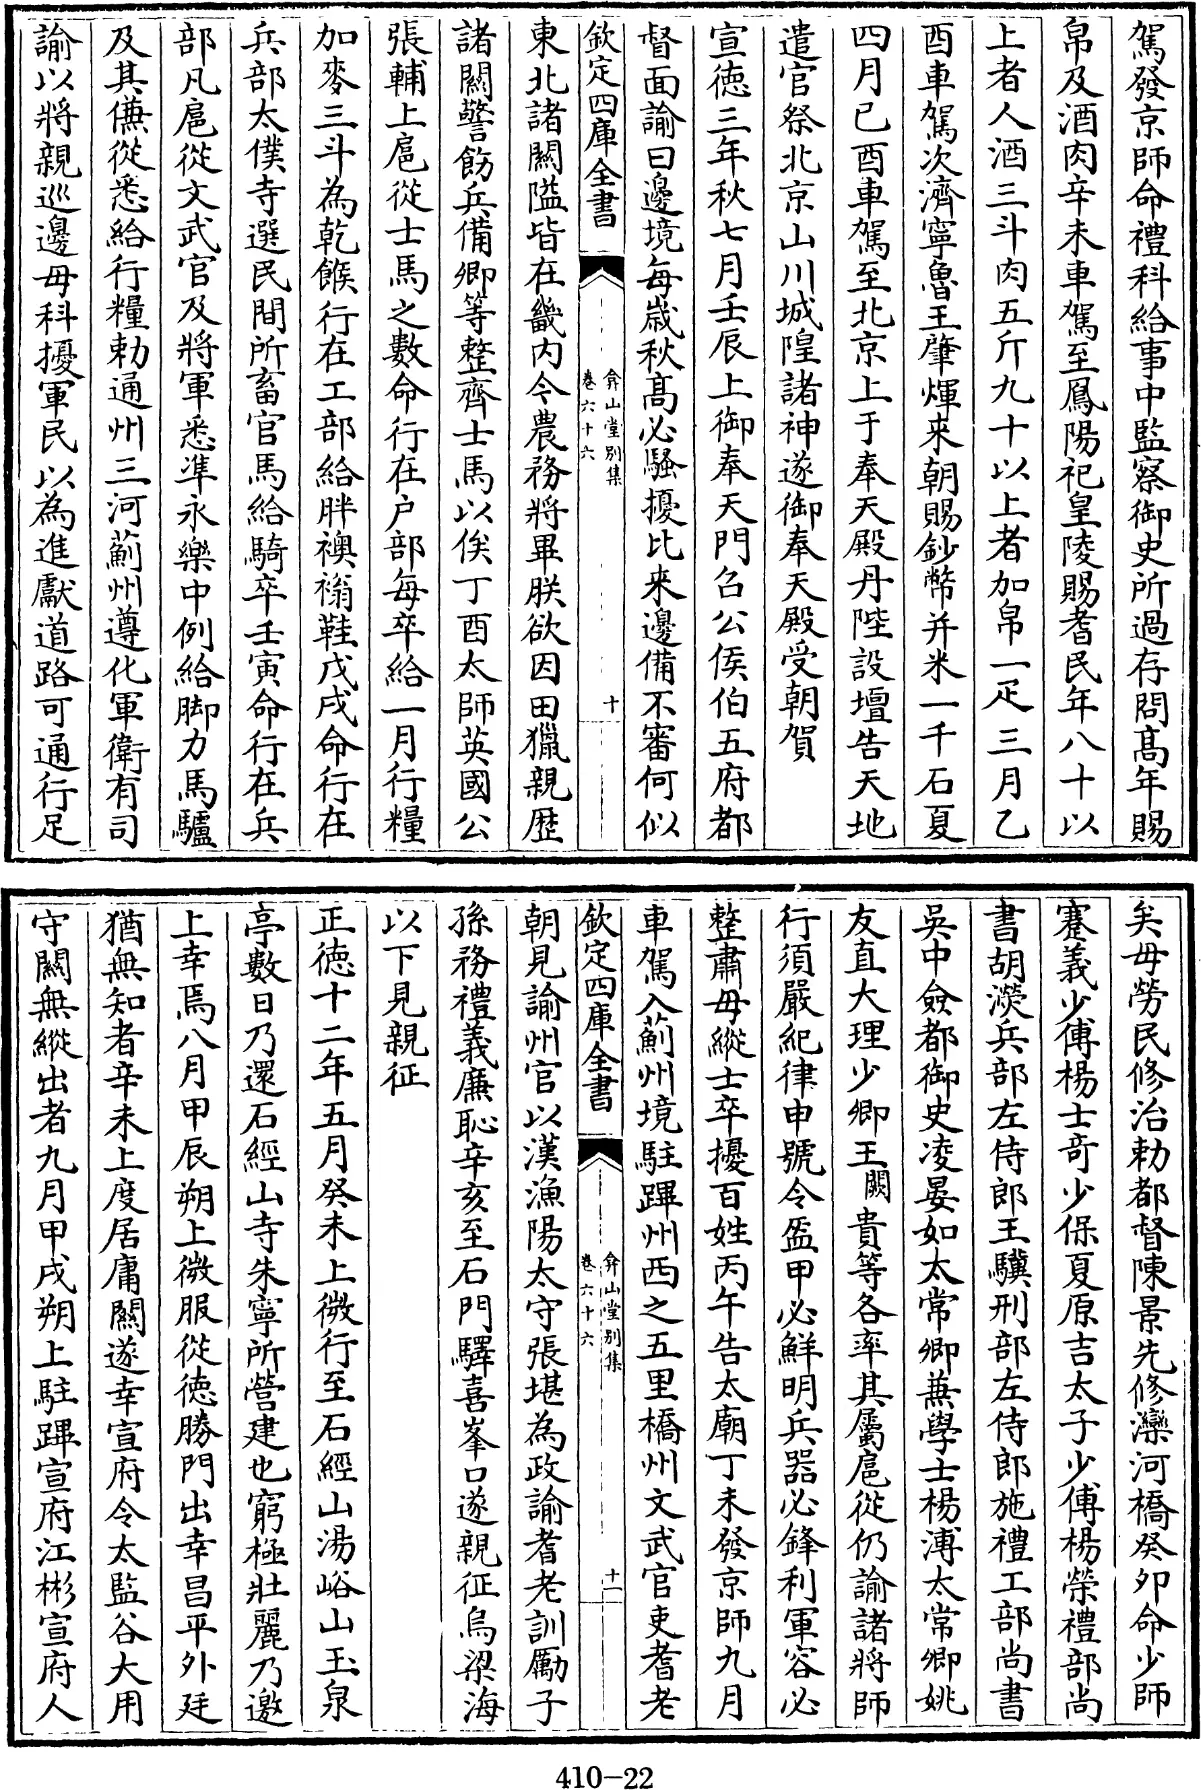 駕發京師命禮科給事中監察御史所過存問髙年賜
帛及酒肉辛未車駕至鳳陽祀皇陵賜耆民年八十以
上者人酒三斗肉五斤九十以上者加帛一疋三月乙
酉車駕次濟寧魯王肇煇来朝賜鈔幣并米一千石夏
四月己酉車駕至北京上于奉天殿丹陛設壇告天地
遣官祭北京山川城隍諸神遂御奉天殿受朝賀
宣徳三年秋七月壬辰上御奉天門召公侯伯五府都
督面諭曰邊境每歲秋髙必騷擾比来邊備不審何似
欽定四庫全書
弇山堂别集
卷六十六
十
東北諸闗隘皆在畿内今農務將畢朕欲因田獵親歴
諸闗警飭兵備卿等整齊士馬以俟丁酉太師英國公
張輔上扈從士馬之數命行在户部每卒給一月行糧
加麥三斗為乾餱行在工部給胖襖䘎鞋戊戌命行在
兵部太僕寺選民間所畜官馬給騎卒壬寅命行在兵
部凡扈從文武官及將軍悉準永樂中例給脚力馬驢
及其傔從悉給行糧勅通州三河薊州遵化軍衛有司
諭以將親巡邊毋科擾軍民以為進獻道路可通行足
矣毋勞民修治勅都督陳景先修灤河橋癸卯命少師
蹇義少傅楊士竒少保夏原吉太子少傅楊榮禮部尚
書胡濙兵部左侍郎王驥刑部左侍郎施禮工部尚書
吳中僉都御史凌晏如太常卿兼學士楊溥太常卿姚
友直大理少卿王闕貴等各率其屬扈從仍諭諸將師
行須嚴紀律申號令盔甲必鮮明兵器必鋒利軍容必
整肅毋縱士卒擾百姓丙午告太廟丁未發京師九月
車駕入薊州境駐蹕州西之五里橋州文武官吏耆老
欽定四庫全書
弇山堂别集
卷六十六
十一
朝見諭州官以漢漁陽太守張堪為政諭耆老訓勵子
孫務禮義廉恥辛亥至石門驛喜峯口遂親征烏梁海
以下見親征
正徳十二年五月癸未上微行至石經山湯峪山玉泉
亭數日乃還石經山寺朱寧所營建也窮極壯麗乃邀
上幸焉八月甲辰朔上微服從徳勝門出幸昌平外廷
猶無知者辛未上度居庸闗遂幸宣府令太監谷大用
守闗無縱出者九月甲戌朔上駐蹕宣府江彬宣府人
410-22